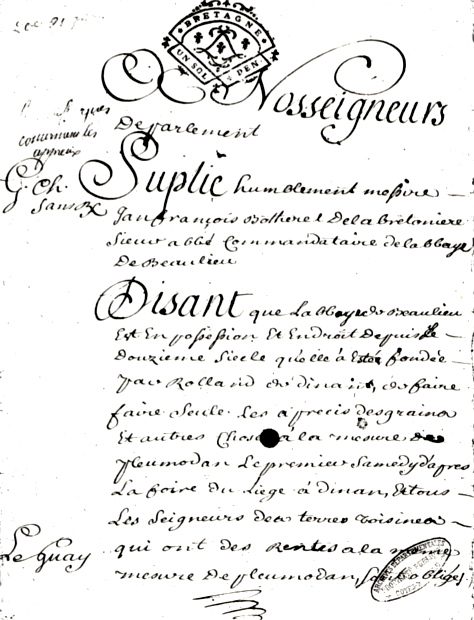 BRETAGNE
UN SOL
DEN.
A Nosseigneurs
De Parlement
concernant les
apprecis
G. Ch.
Sans
Suplie humblement messire
Jan François Botherel De la Bretoniere
Sieur abbé Commandataire de la Abbaye
De Beaulieu
Disant que La Abbaye de Beaulieu
Est En possession Et Endroit Depuis le
Douzieme Siecle quelle à Esté fondée
Par Rolland de dinant, de faire
faire Seule Les apprecis des grains
Et autres Choses à la mesure de
pleumodan Le premier Samedy d'apres
La foire du Liege à dinan, Et tous
Les Seigneurs des terres voisines
Le Guay
qui ont des Rentes a la meme
mesure De pleumodan, sont obligés
ARCHIVES DEPARTEMENTALES